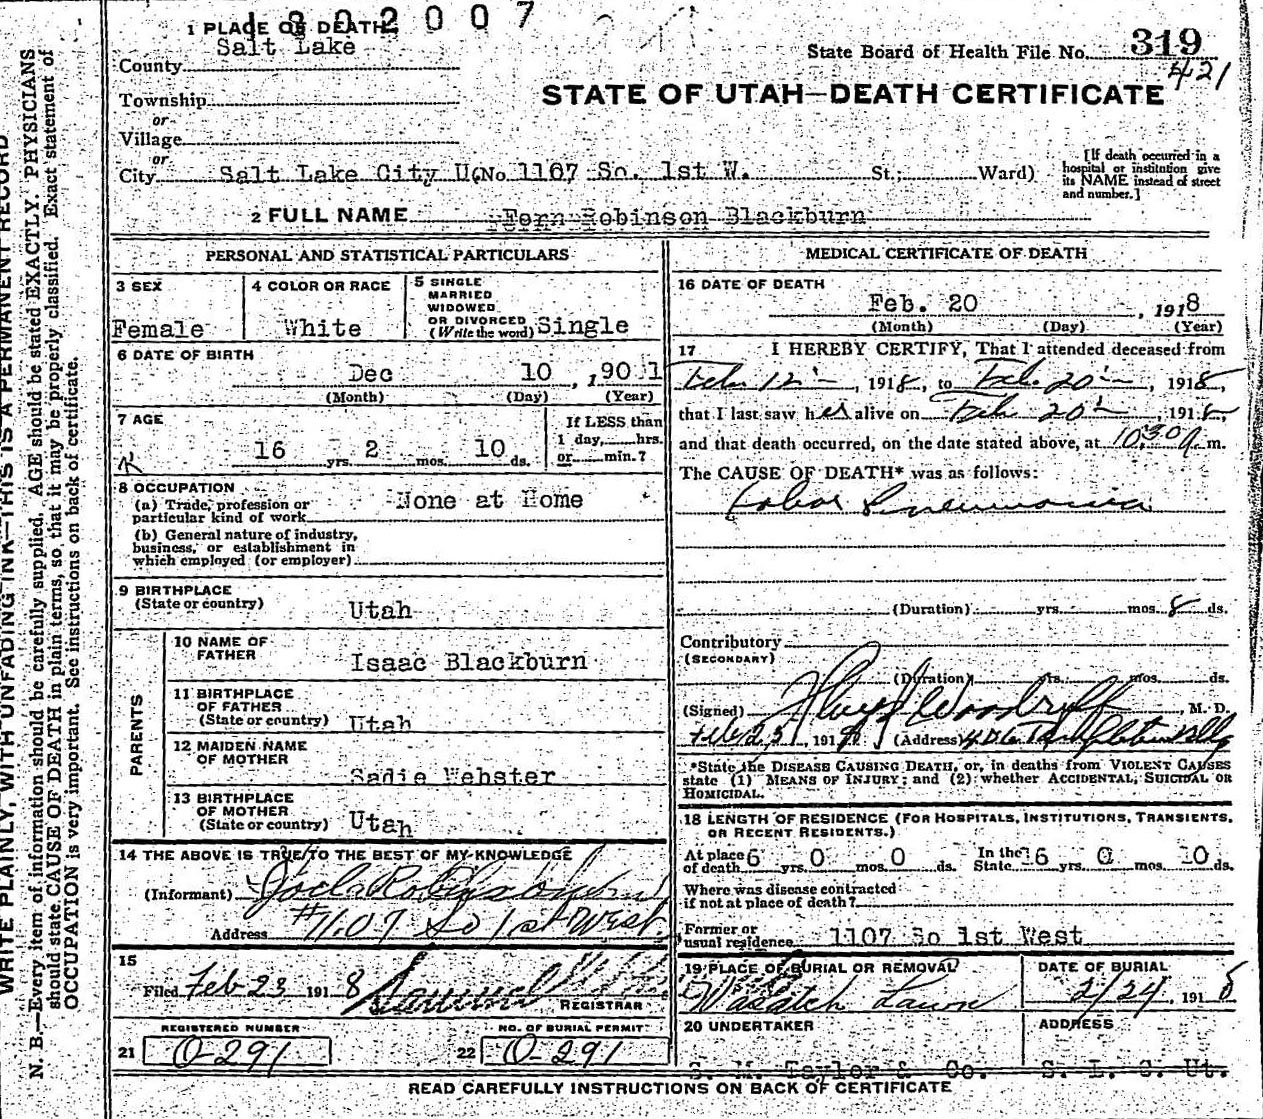 1802007
1 PLACE OF DEATH
Salt Lake
County
State Board of Health File No. 319
421
Township
or
Village
or
STATE OF UTAH—DEATH CERTIFICATE
City Salt Lake City U(No. 1107 So. 1st W. St.; Ward)
[If death occurred in a
hospital or institution give
its NAME instead of street
and number.]
2 FULL NAME Fern Robinson Blackburn
PERSONAL AND STATISTICAL PARTICULARS
3 SEX
Female
4 COLOR OR RACE
White
5 SINGLE
MARRIED
WIDOWED
OR DIVORCED
(Write the word) Single
6 DATE OF BIRTH
Dec 10, 1901
(Month) (Day) (Year)
7 AGE
16 yrs. 2 mos. 10 ds.
If LESS than
1 day, hrs.
or min.?
8 OCCUPATION
(a) Trade, profession or
particular kind of work None at Home
(b) General nature of industry,
business, or establishment in
which employed (or employer)
9 BIRTHPLACE
(State or country) Utah
PARENTS
10 NAME OF
FATHER Isaac Blackburn
11 BIRTHPLACE
OF FATHER
(State or country) Utah
12 MAIDEN NAME
OF MOTHER
Sadie Webster
13 BIRTHPLACE
OF MOTHER
(State or country) Utah
14 THE ABOVE IS TRUE TO THE BEST OF MY KNOWLEDGE
(Informant)
Address #1107 So 1st West
15
Filed Feb 23 1918 Samuel
REGISTRAR
REGISTERED NUMBER
21 O-291
NO. OF BURIAL PERMIT
22 O-291
MEDICAL CERTIFICATE OF DEATH
16 DATE OF DEATH
Feb. 20, 1918
(Month) (Day) (Year)
17 I HEREBY CERTIFY, That I attended deceased from
Feb. 12, 1918, to Feb. 20, 1918,
that I last saw her alive on Feb 20, 1918,
and that death occurred, on the date stated above, at 10:30 m.
The CAUSE OF DEATH* was as follows:
Lobar Pneumonia
(Duration) yrs. mos. 8 ds.
Contributory
(SECONDARY)
(Duration) yrs. mos. ds.
(Signed) Woodruff, M. D.
Feb 23, 1918 (Address)
*State the DISEASE CAUSING DEATH, or, in deaths from VIOLENT CAUSES
state (1) MEANS OF INJURY; and (2) whether ACCIDENTAL, SUICIDAL OR
HOMICIDAL.
18 LENGTH OF RESIDENCE (FOR HOSPITALS, INSTITUTIONS, TRANSIENTS,
OR RECENT RESIDENTS.)
At place
of death 6 yrs. 0 mos. 0 ds. In the
State 16 yrs. 0 mos. 10 ds.
Where was disease contracted
if not at place of death?
Former or
usual residence 1107 So 1st West
19 PLACE OF BURIAL OR REMOVAL
Wasatch Lawn
DATE OF BURIAL
2/24, 1918
20 UNDERTAKER
S. M. Taylor & Co.
ADDRESS
S. L. C. Ut.
READ CAREFULLY INSTRUCTIONS ON BACK OF CERTIFICATE
WRITE PLAINLY, WITH UNFADING INK—THIS IS A PERMANENT RECORD
N. B.—Every item of information should be carefully supplied. AGE should be stated EXACTLY. PHYSICIANS
should state CAUSE OF DEATH in plain terms, so that it may be properly classified. Exact statement of
OCCUPATION is very important. See instructions on back of certificate.